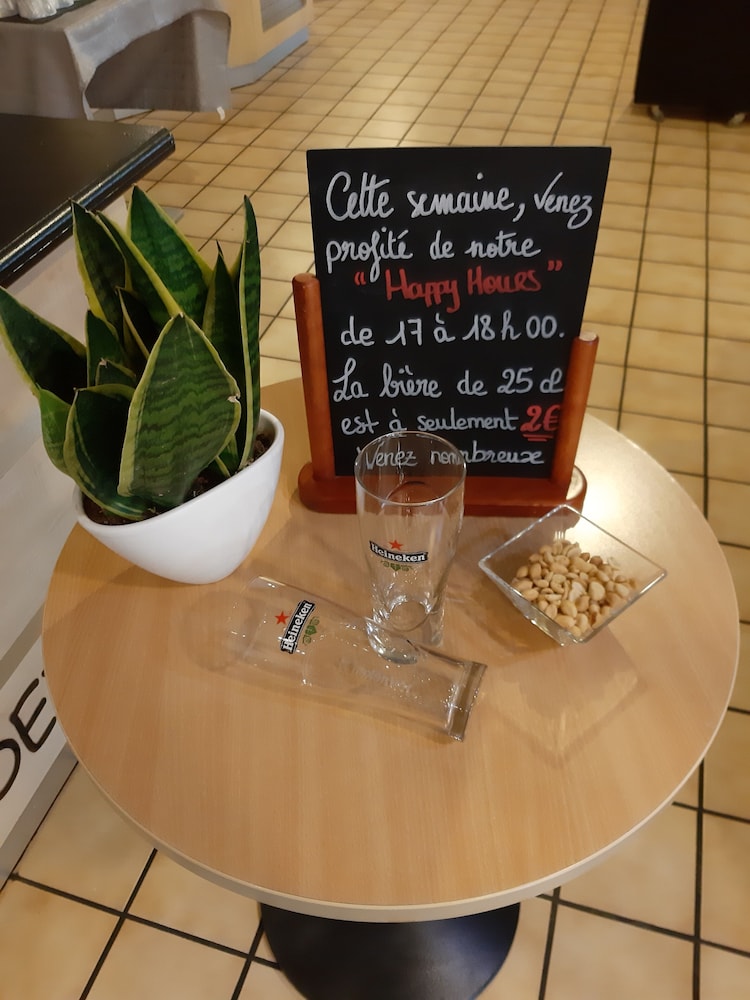 Cette semaine, venez
profité de notre
"Happy Hours"
de 17 à 18h00.
La bière de 25 cl
est à seulement 2€
Venez nombreuse
Heineken
Heineken